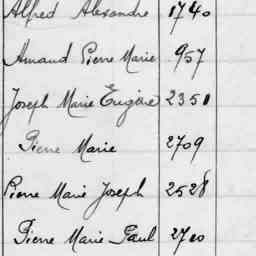 Alfred Alexandre 1740
Amand Pierre Marie 957
Joseph Marie Eugène 2351
Pierre Marie 2709
Pierre Marie Joseph 2528
Pierre Marie Paul 2700